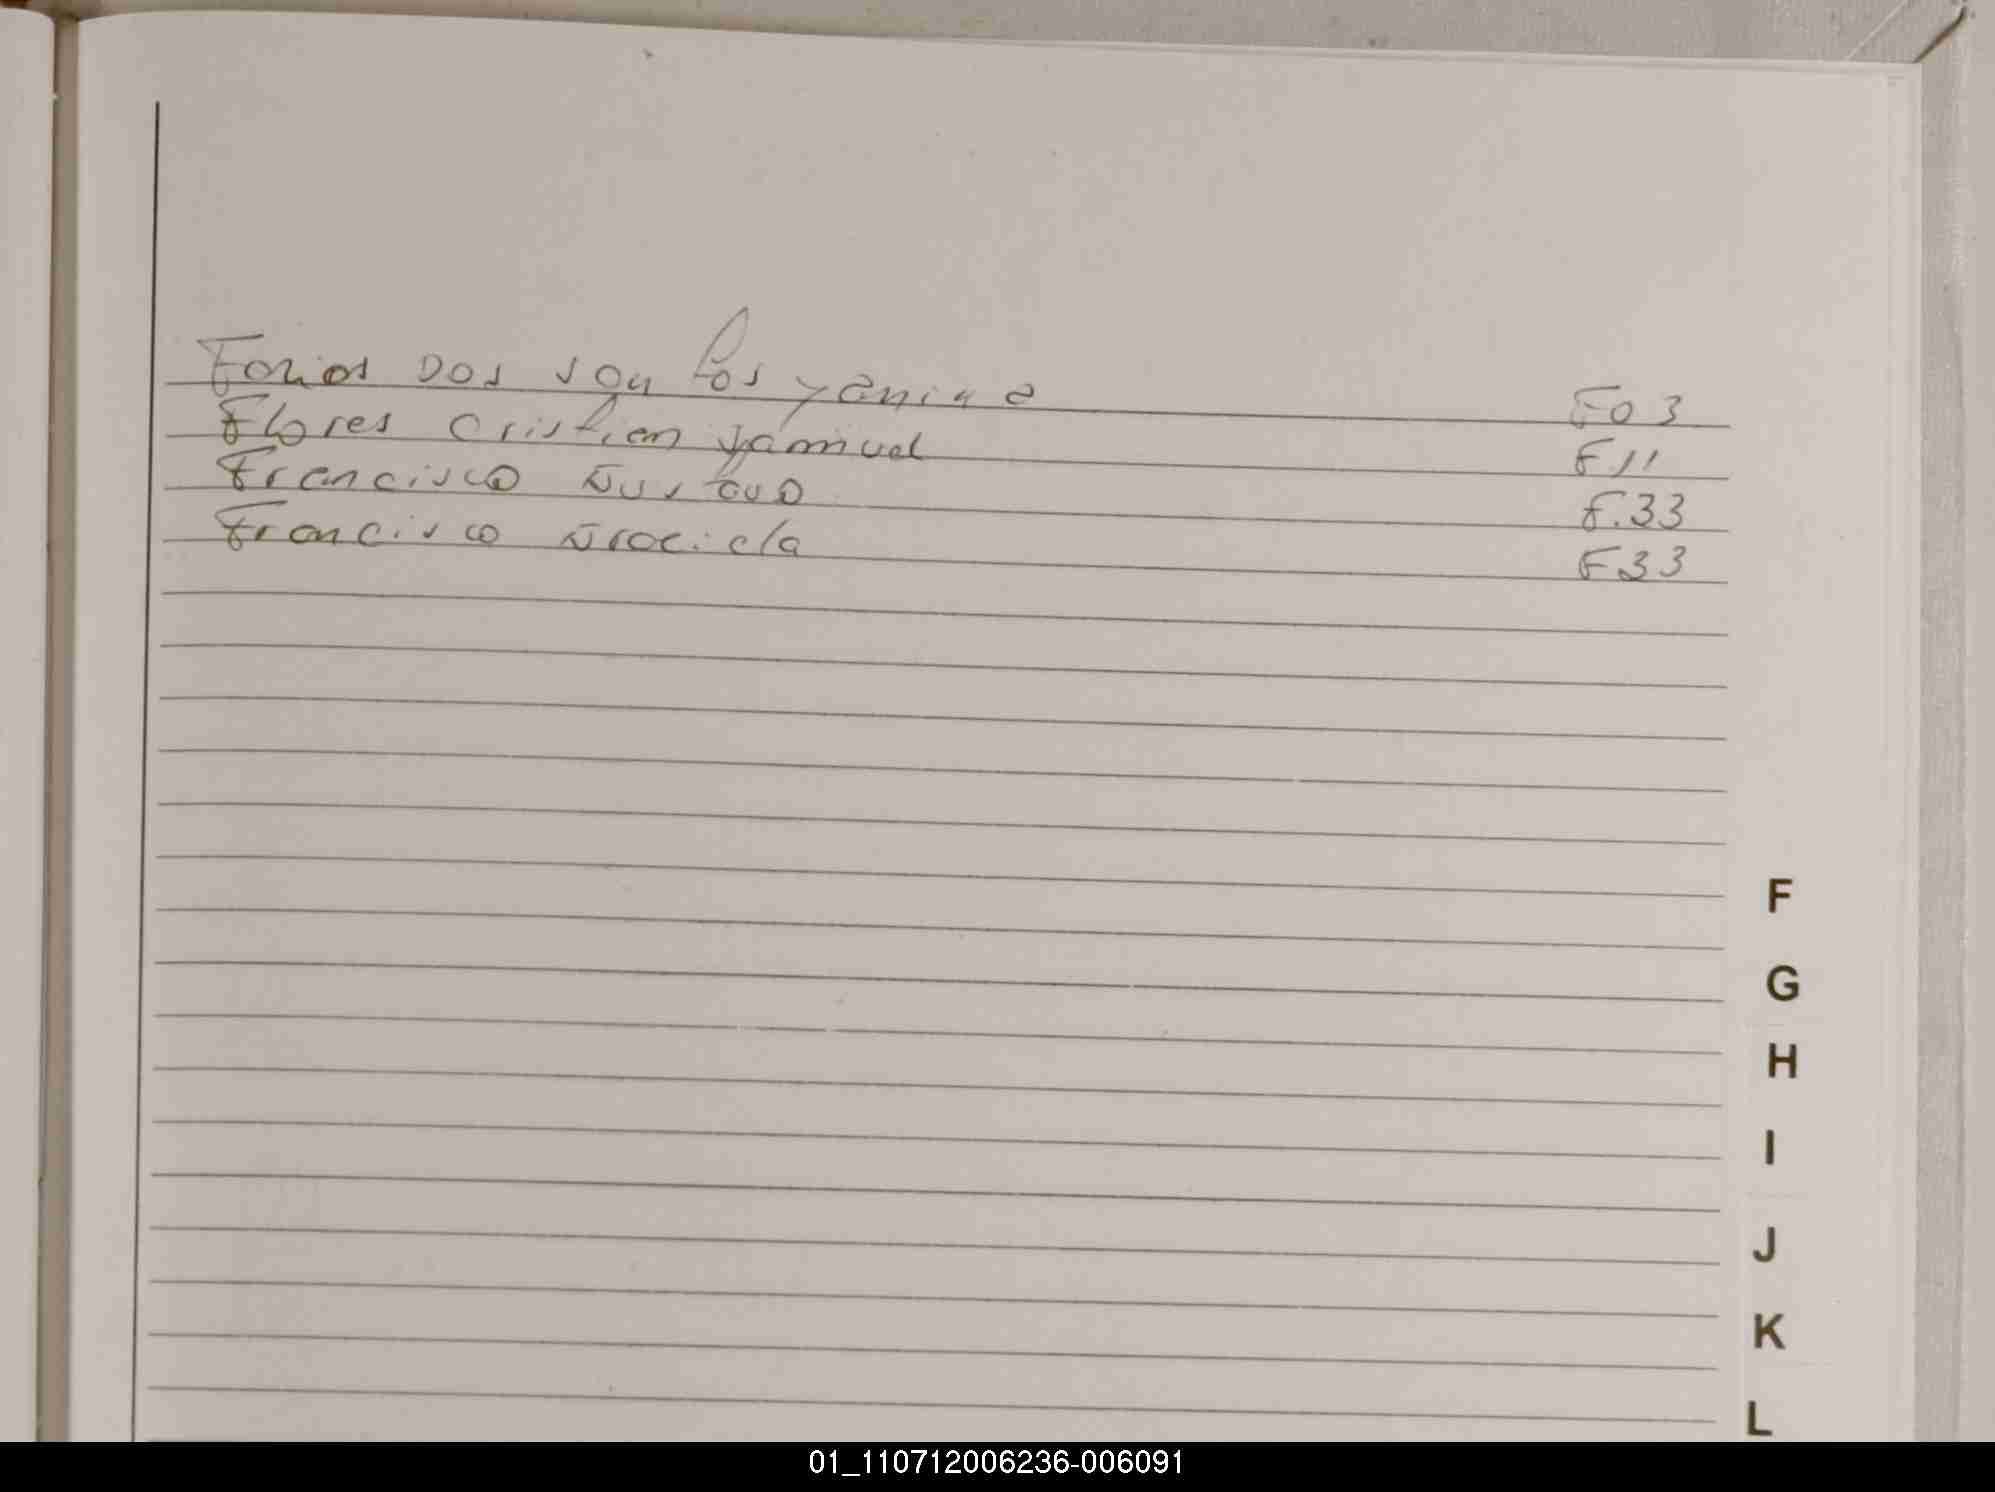 Farias Dos santos yanina F03
Flores Cristian Samuel F11
Francisco Gustavo F.33
Francisco Graciela F33
F
G
H
I
J
K
L
01_110712006236-006091